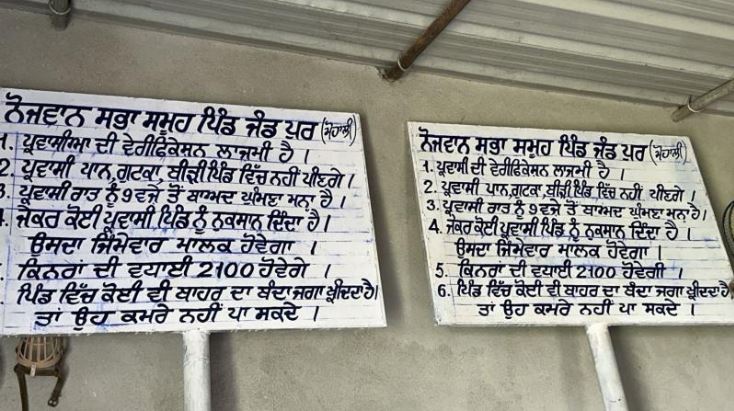 ਨੋਜਵਾਨ ਸਭਾ ਸਮੂਹ ਪਿੰਡ ਜੰਡ ਪੁਰ (ਮੋਹਾਲੀ)
1. ਪ੍ਰਵਾਸੀਆ ਦੀ ਵੇਰੀਫਿਕੇਸਨ ਲਾਜਮੀ ਹੈ ।
2. ਪ੍ਰਵਾਸੀ ਪਾਨ, ਗੁਟਕਾ, ਬੀੜੀ ਪਿੰਡ ਵਿੱਚ ਨਹੀਂ ਪੀਣਗੇ ।
3. ਪ੍ਰਵਾਸੀ ਰਾਤ ਨੂੰ 9 ਵਜੇ ਤੋਂ ਬਾਅਦ ਘੁੰਮਣਾ ਮਨਾ ਹੈ ।
4. ਜੇਕਰ ਕੋਈ ਪ੍ਰਵਾਸੀ ਪਿੰਡ ਨੂੰ ਨੁਕਸਾਨ ਦਿੰਦਾ ਹੈ ।
ਉਸਦਾ ਜਿੰਮੇਵਾਰ ਮਾਲਕ ਹੋਵੇਗਾ ।
ਕਿਨਰਾਂ ਦੀ ਵਧਾਈ 2100 ਹੋਵੇਗੇ ।
ਪਿੰਡ ਵਿੱਚ ਕੋਈ ਵੀ ਬਾਹਰ ਦਾ ਬੰਦਾ ਜਗਾ ਖ੍ਰੀਦਦਾ ਹੈ।
ਤਾਂ ਉਹ ਕਮਰੇ ਨਹੀਂ ਪਾ ਸਕਦੇ ।
ਨੋਜਵਾਨ ਸਭਾ ਸਮੂਹ ਪਿੰਡ ਜੰਡ ਪੁਰ (ਮੋਹਾਲੀ)
1. ਪ੍ਰਵਾਸੀ ਦੀ ਵੇਰੀਫਿਕੇਸਨ ਲਾਜਮੀ ਹੈ ।
2. ਪ੍ਰਵਾਸੀ ਪਾਨ, ਗੁਟਕਾ, ਬੀੜੀ ਪਿੰਡ ਵਿੱਚ ਨਹੀਂ ਪੀਣਗੇ ।
3. ਪ੍ਰਵਾਸੀ ਰਾਤ ਨੂੰ 9 ਵਜੇ ਤੋਂ ਬਾਅਦ ਘੁੰਮਣਾ ਮਨਾ ਹੈ।
4. ਜੇਕਰ ਕੋਈ ਪ੍ਰਵਾਸੀ ਪਿੰਡ ਨੂੰ ਨੁਕਸਾਨ ਦਿੰਦਾ ਹੈ ।
ਉਸਦਾ ਜਿੰਮੇਵਾਰ ਮਾਲਕ ਹੋਵੇਗਾ ।
5. ਕਿਨਰਾਂ ਦੀ ਵਧਾਈ 2100 ਹੋਵੇਗੀ ।
6. ਪਿੰਡ ਵਿੱਚ ਕੋਈ ਵੀ ਬਾਹਰ ਦਾ ਬੰਦਾ ਜਗਾ ਖ੍ਰੀਦਦਾ ਹੈ
ਤਾਂ ਉਹ ਕਮਰੇ ਨਹੀਂ ਪਾ ਸਕਦੇ ।